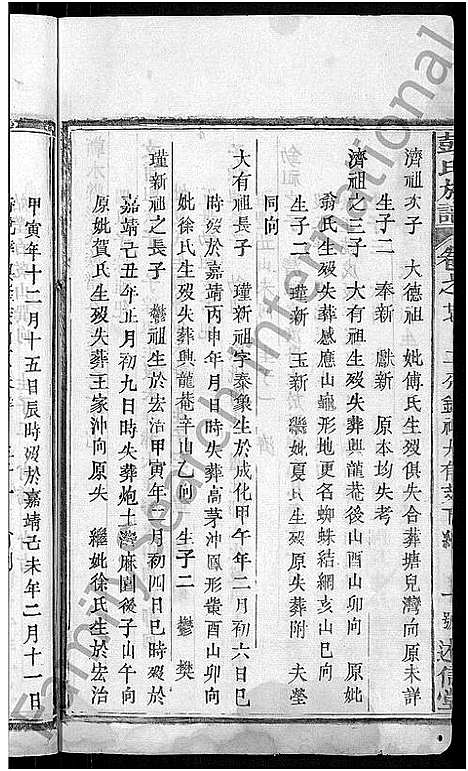 彭氏族譜 卷之 述信堂
濟祖次子 大德祖 生 妣傅氏生歿俱失合葬塘兒灣向原未詳
生子二 奉新 獻新 原本均失考
濟祖之三子 大有祖生歿失葬興龍菴後山酉山卯向 原妣
翁氏生歿失葬感應山龜形地更名蜘蛛結網亥山巳向
生子二 瑾新 玉新 繼妣夏氏生歿原失葬附 夫塋
同向
大有祖長子 瑾新祖字泰象生於成化甲午年二月初六日巳
時歿於嘉靖丙申年月日時失葬高茅沖鳳形嘴酉山卯向
妣徐氏生歿失葬興龍菴辛山乙向 生子二 鬱 樊
瑾新祖之長子 鬱祖生於宏治甲寅年二月初四日巳時歿於
嘉靖己丑年正月初九日時失葬炮土灣麻園後子山午向
原妣賀氏生歿失葬王家沖向原失 繼妣徐氏生於宏治
甲寅年十二月十五日辰時歿於嘉靖己未年二月十一日
Family Search International